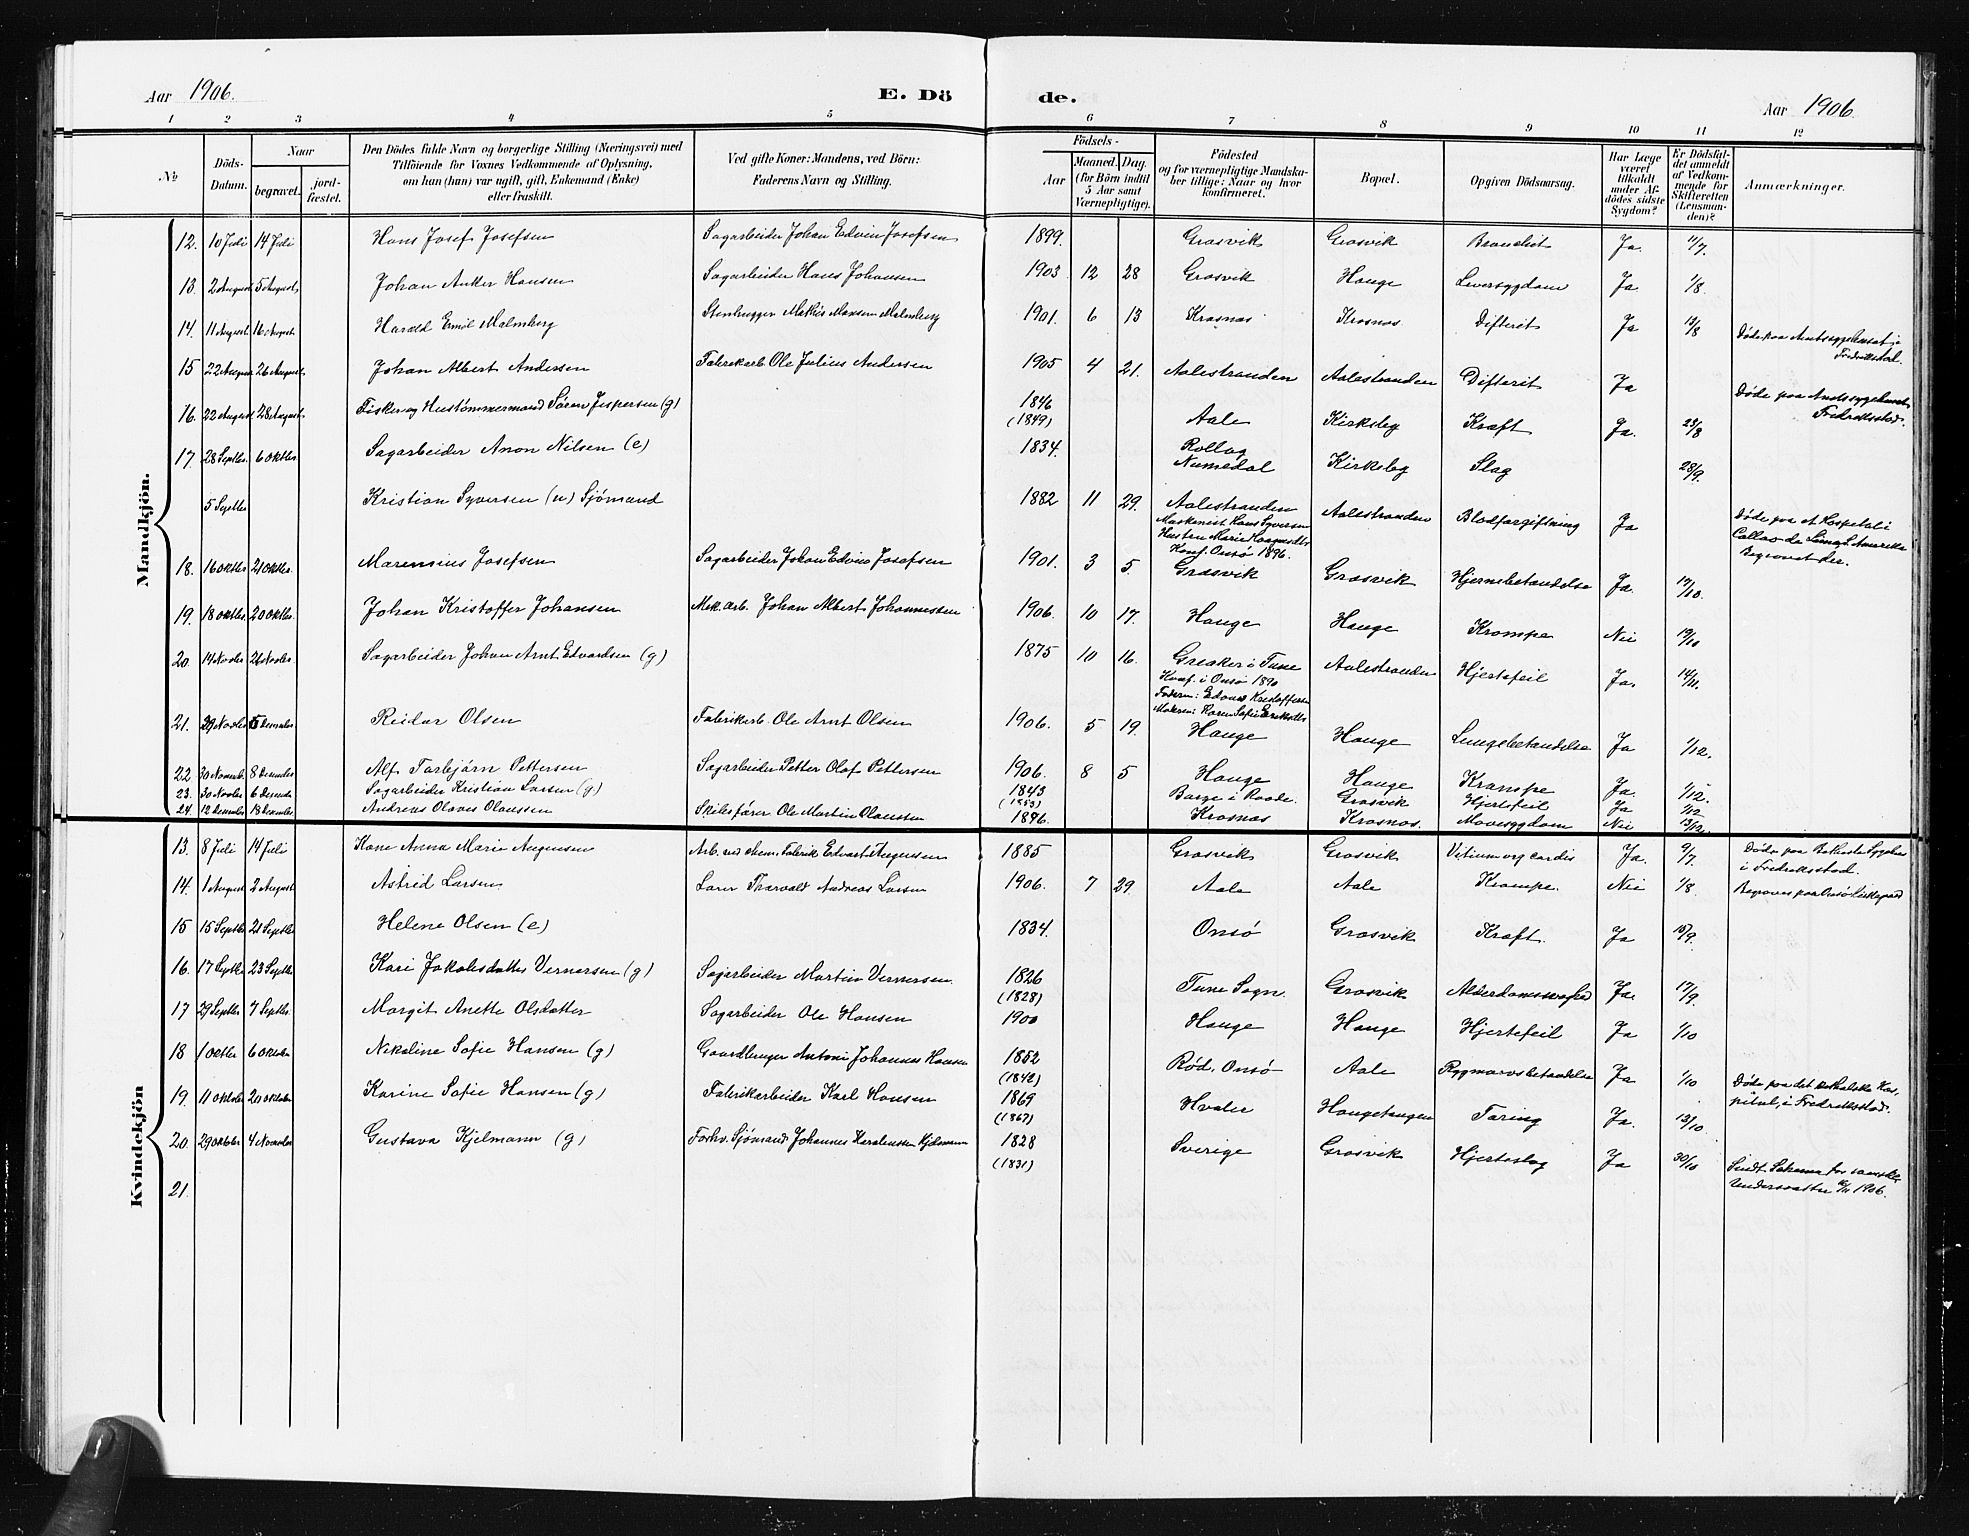 Aar 1906. E. Dö de. Aar 1906
1 2 3 4 5 6 7 8 9 10 11 12
№ Döds-Datum. Naar begravet. jord-fæstet. Den Dödes fulde Navn og borgerlige Stilling (Næringsvei) med Tilföiende for Voxnes Vedkommende af Oplysning, om han (hun) var ugift, gift, Enkemand (Enke) eller fraskilt. Ved gifte Koner: Mandens, ved Börn: Faderens Navn og Stilling. Födsels- Aar Maaned. Dag. (for Börn indtil 5 Aar samt Værnepligtige). Födested og for værnepligtige Mandskaber tillige: Naar og hvor konfirmeret. Bopæl. Opgiven Dödsaarsag. Har Læge været tilkaldt under Afdödes sidste Sygdom? Er Dödsfaldet anmeldt af Vedkommende for Skifteretten (Lensmanden)? Anmærkninger.
Mandkjön.
12. 10 Juli 14 Juli Hans Josef Josefsen Sagarbeider Johan Edvin Josefsen 1899. Grasvik Grasvik Ja. 11/7.
13. 2 August 5 August Johan Anker Hansen Sagarbeider Hans Johansen 1903 12 28 Grasvik Hauge Leversygdam Ja 1/8.
14. 11 August 16 August Harald Emil Malmberg Stenhugger Malmberg 1901. 6 13 Krosnas Krosnas Difterit Ja 13/8 Døde paa Amtssygehuset i Fredrikstad.
15 22 August 26 August Johan Albert Andersen Fabrikarb. Ole Julius Andersen 1905 4 21. Aalestranden Aalestranden Difterit Ja Døde paa Amtssygehuset Fredrikstad.
16. 22 August 28 August Fisker og Hustømmermand Søren Jespersen (g) 1846 (1849) Aale Kirkeby Kræft Ja. 23/8
17. 28 Septbr. 6 Oktbr. Sagarbeider Anon Nilsen (e) 1834. Rollag Numedal Kirkeby Slag 28/9.
5 Septbr Kristian Syversen (u) Sjømand 1882 11 29. Aalestranden Maskinist Hans Syversen Hustru Marie Konf. Onsø 1896. Aalestranden Blodforgiftning Ja Døde paa et Hospital i Callao de Lima S. Amerika Begravet der.
18. 16 Oktbr 21 Oktbr. Marenius Josefsen Sagarbeider Johan Edvin Josefsen 1901. 3 5. Grasvik Grasvik Hjernebetændelse Ja. 17/10.
19. 18 Oktbr. 20 Oktbr. Johan Kristoffer Johansen Mek. arb. Johan Albert Johannessen 1906. 10 17. Hauge Hauge Krampe Nei 19/10
20. 14 Novbr. 21 Novbr. Sagarbeider Johan Arnt Edvardsen (g) 1875 10 16. Greaker i Tune Konf. i Onsø 1890 Faderen: Edvard Kristoffersen Moderen: Karen Sofie Aalestranden Hjertefeil Ja. 14/11.
21. 29 Novbr. 5 December Reidar Olsen Fabrikarb. Ole Arnt Olsen 1906. 5 19. Hauge Hauge Lungebetændelse Ja 1/12.
22 30 Novemb. 8 December Alf Torbjørn Pettersen Sagarbeider Petter Olaf Pettersen 1906. 8 5 Hauge Hauge Krampe Ja. 1/12.
23. 30 Novbr 6 Decembr Sagarbeider Kristian Larsen (g) 1843 (1853) Barge i Raade. Grasvik Hjertefeil Ja 1/12
24. 12 December 18 December Andreas Olaves Olaussen Skibsfører Ole Martin Olaussen 1896. Krosnas Krosnas. Mavesygdom Nei 13/12.
Kvindekjön
13. 8 Juli 14 Juli Kone Anna Marie Augensen Arb. ved chem. Fabrik Edvart Augensen 1885 Grasvik Grasvik Vitium org. cordis Ja. 9/7 Døde paa i Fredriksstad.
14. 1 August 2 August Astrid Larsen Lærer Thorvald Andreas Larsen 1906. 7 29. Aale Aale Krampe. Nei 1/8 Begraves paa Onsø Kirkegaard
15 15 Septbr 21 Septbr Helene Olsen (e) 1834. Onsø Grasvik Kræft. Ja 15/9.
16. 17 Septbr. 23 Septbr Kari Jakobsdatter Vernersen (g) Sagarbeider Martin Vernersen. 1826 (1828) Tune Sogn. Grasvik Alderdomssvaghed Ja. 17/9
17 29 Septbr 7 Septbr. Margit Anette Olsdatter Sagarbeider Ole Hansen 1900 Hauge Hauge Hjertefeil Ja 1/10
18 1 Oktbr 6 Oktober Nikoline Sofie Hansen (g) Gaardbruger Antoni Johannes Hansen 1852 (1842) Rød. Onsø Aale Rygmarvsbetændelse Ja 1/10
19. 11 Oktober 20 Oktober Karine Sofie Hansen (g) Fabrikarbeider Karl Hansen 1869 (1867) Hvaler Haugetangen Tæring Ja. 12/10 Døde paa det Hospital, i Fredriksstad.
20. 29 Oktbr 4 November Gustava Kjelmann (g) Forhv. Sjømand Johannes Karelinssen Kjelmann 1828 (1831) Sverige Grasvik Hjerteslag Ja 30/10 Sendt Schema for svenske Undersaatter 10/11 1906.
21.